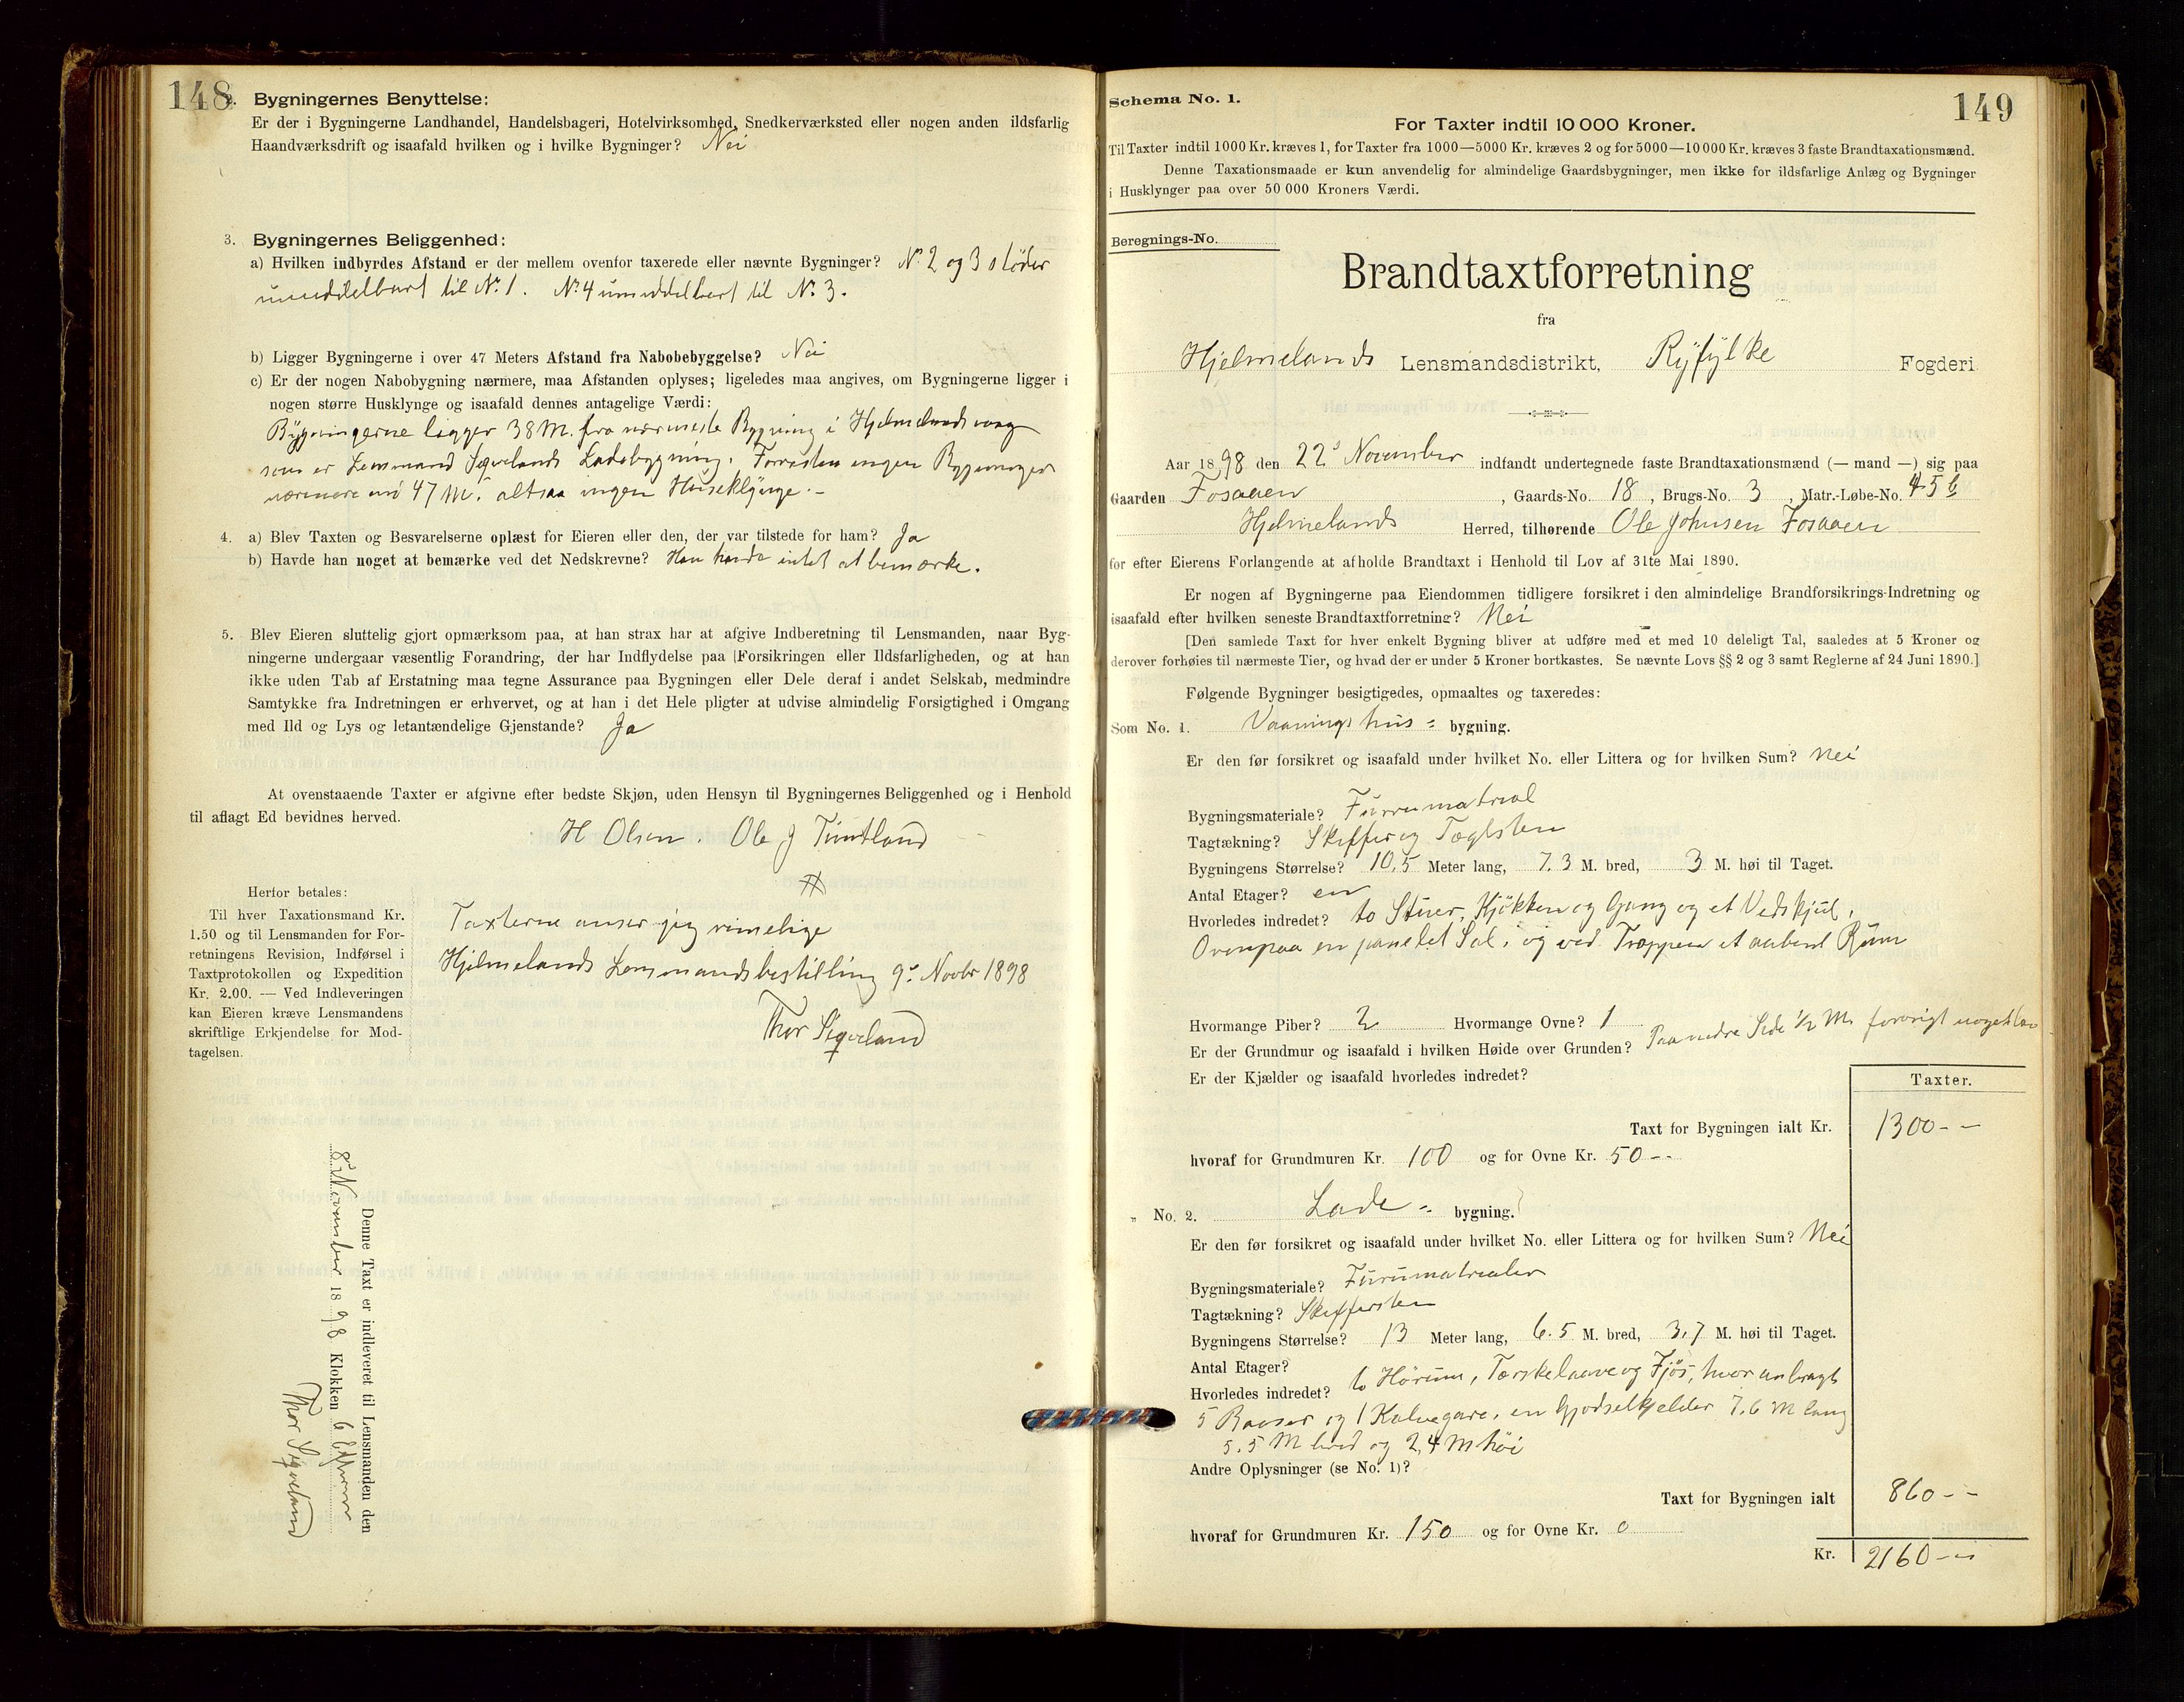 148
2. Bygningernes Benyttelse:
Er der i Bygningerne Landhandel, Handelsbageri, Hotelvirksomhed, Snedkerværksted eller nogen anden ildsfarlig
Haandværksdrift og isaafald hvilken og i hvilke Bygninger? Nei
3. Bygningernes Beliggenhed:
a) Hvilken indbyrdes Afstand er der mellem ovenfor taxerede eller nævnte Bygninger? No 2 og 3 støder
umiddelbart til No 1. No 4 umiddelbart til No 3.
b) Ligger Bygningerne i over 47 Meters Afstand fra Nabobebyggelse? Nei
c) Er der nogen Nabobygning nærmere, maa Afstanden oplyses; ligeledes maa angives, om Bygningerne ligger i
nogen større Husklynge og isaafald dennes antagelige Værdi:
Bygningerne ligger 38 M. fra nærmeste Bygning i Hjelmelandsvaag
som er Lensmand Sigvelands Ladebygning. Forresten ingen Bygninger
nærmere end 47 M. altsaa ingen Huseklynge.-
4. a) Blev Taxten og Besvarelserne oplæst for Eieren eller den, der var tilstede for ham? Ja
b) Havde han noget at bemærke ved det Nedskrevne? Han havde intet at bemærke.
5. Blev Eieren sluttelig gjort opmærksom paa, at han strax har at afgive Indberetning til Lensmanden, naar Byg-
ningerne undergaar væsentlig Forandring, der har Indflydelse paa Forsikringen eller Ildsfarligheden, og at han
ikke uden Tab af Erstatning maa tegne Assurance paa Bygningen eller Dele deraf i andet Selskab, medmindre
Samtykke fra Indretningen er erhvervet, og at han i det Hele pligter at udvise almindelig Forsigtighed i Omgang
med Ild og Lys og letantændelige Gjenstande? Ja
At ovenstaaende Taxter er afgivne efter bedste Skjøn, uden Hensyn til Bygningernes Beliggenhed og i Henhold
til aflagt Ed bevidnes herved.
H Olsen. Ole J Tuntland
Herfor betales:
Til hver Taxationsmand Kr.
1.50 og til Lensmanden for For-
retningens Revision, Indførsel i
Taxtprotokollen og Expedition
Kr. 2.00. — Ved Indleveringen
kan Eieren kræve Lensmandens
skriftlige Erkjendelse for Mod-
tagelsen.
Taxterne anser jeg rimelige
Hjelmelands Lensmandsbestilling 9. Novbr 1898
Thor Sigveland
Denne Taxt er indleveret til Lensmanden den
8 November 1898 Klokken 6 Efterm
Thor Sigveland
149
Schema No. 1.
For Taxter indtil 10 000 Kroner.
Til Taxter indtil 1000 Kr. kræves 1, for Taxter fra 1000—5000 Kr. kræves 2 og for 5000—10 000 Kr. kræves 3 faste Brandtaxationsmænd.
Denne Taxationsmaade er kun anvendelig for almindelige Gaardsbygninger, men ikke for ildsfarlige Anlæg og Bygninger
i Husklynger paa over 50 000 Kroners Værdi.
Beregnings-No.
Brandtaxtforretning
fra
Hjelmelands Lensmandsdistrikt, Ryfylke Fogderi
Aar 1898 den 22 November indfandt undertegnede faste Brandtaxationsmænd (— mand —) sig paa
Gaarden Fosaaen, Gaards-No. 18, Brugs-No. 3, Matr.-Løbe-No. 45 b
Hjelmelands Herred, tilhørende Ole Johnsen Fosaaen
for efter Eierens Forlangende at afholde Brandtaxt i Henhold til Lov af 31te Mai 1890.
Er nogen af Bygningerne paa Eiendommen tidligere forsikret i den almindelige Brandforsikrings-Indretning og
isaafald efter hvilken seneste Brandtaxtforretning? Nei
[Den samlede Taxt for hver enkelt Bygning bliver at udføre med et med 10 deleligt Tal, saaledes at 5 Kroner og
derover forhøies til nærmeste Tier, og hvad der er under 5 Kroner bortkastes. Se nævnte Lovs §§ 2 og 3 samt Reglerne af 24 Juni 1890.]
Følgende Bygninger besigtigedes, opmaaltes og taxeredes:
Som No. 1. Vaaningshus- bygning.
Er den før forsikret og isaafald under hvilket No. eller Littera og for hvilken Sum? Nei
Bygningsmateriale? Furrumatrial
Tagtækning? Skiffer og Taglsten
Bygningens Størrelse? 10,5 Meter lang, 7.3 M. bred, 3 M. høi til Taget.
Antal Etager? en
Hvorledes indredet? to Stuer, Kjøkken og Gang og et Vedskjul,
Ovenpaa en panelet Sal, og ved Trappen et aabent Rum
Hvormange Piber? 2 Hvormange Ovne? 1
Er der Grundmur og isaafald i hvilken Høide over Grunden? Paa nedre Side 1/2 M. forøvrigt noget lav
Er der Kjælder og isaafald hvorledes indredet?
Taxter.
Taxt for Bygningen ialt Kr. 1300--
hvoraf for Grundmuren Kr. 100 og for Ovne Kr. 50--
„ No. 2. Lade- bygning.
Er den før forsikret og isaafald under hvilket No. eller Littera og for hvilken Sum? Nei
Bygningsmateriale? Furumatrialer
Tagtækning? Skiffersten
Bygningens Størrelse? 13 Meter lang, 6.5 M. bred, 3,7 M. høi til Taget.
Antal Etager?
Hvorledes indredet? to Hørum, Tærskelaave og Fjøs, hvor anbragt
5 Baaser og 1 Kalvegare, en Gjødselkjelder 7.6 M lang
5.5 M bred og 2,4 M høi
Andre Oplysninger (se No. 1)?
Taxt for Bygningen ialt 860--
hvoraf for Grundmuren Kr. 150 og for Ovne Kr. 0
Kr. 2160--